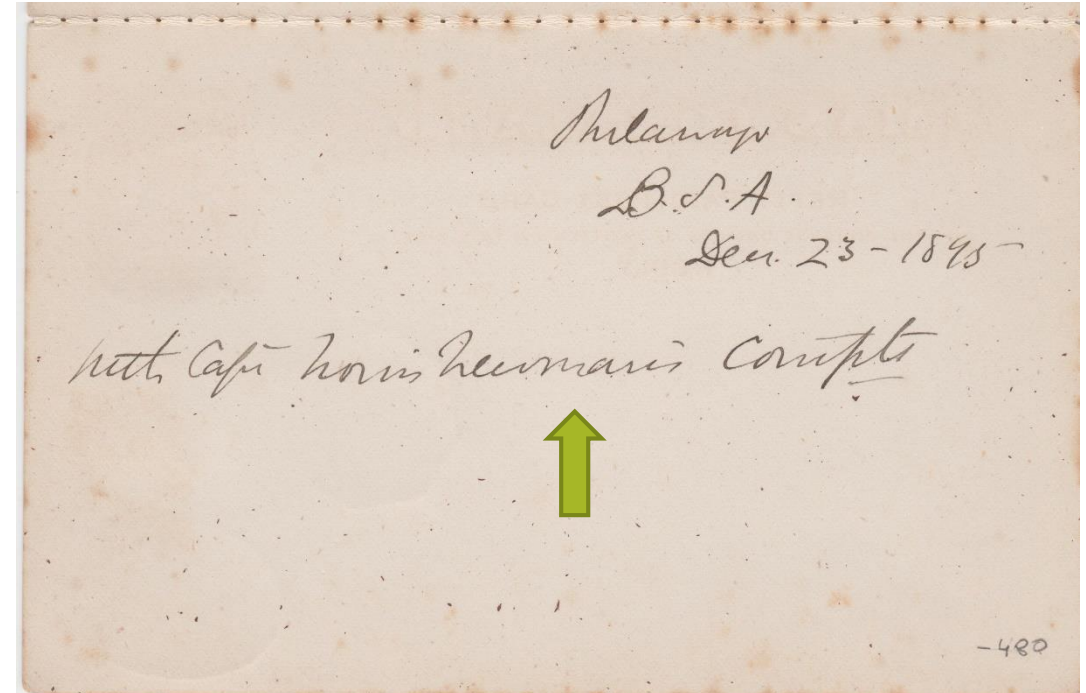 Bulawayo
B.S.A.
Dec. 23 - 1895
With Capt Norris Newman's Compts
-480